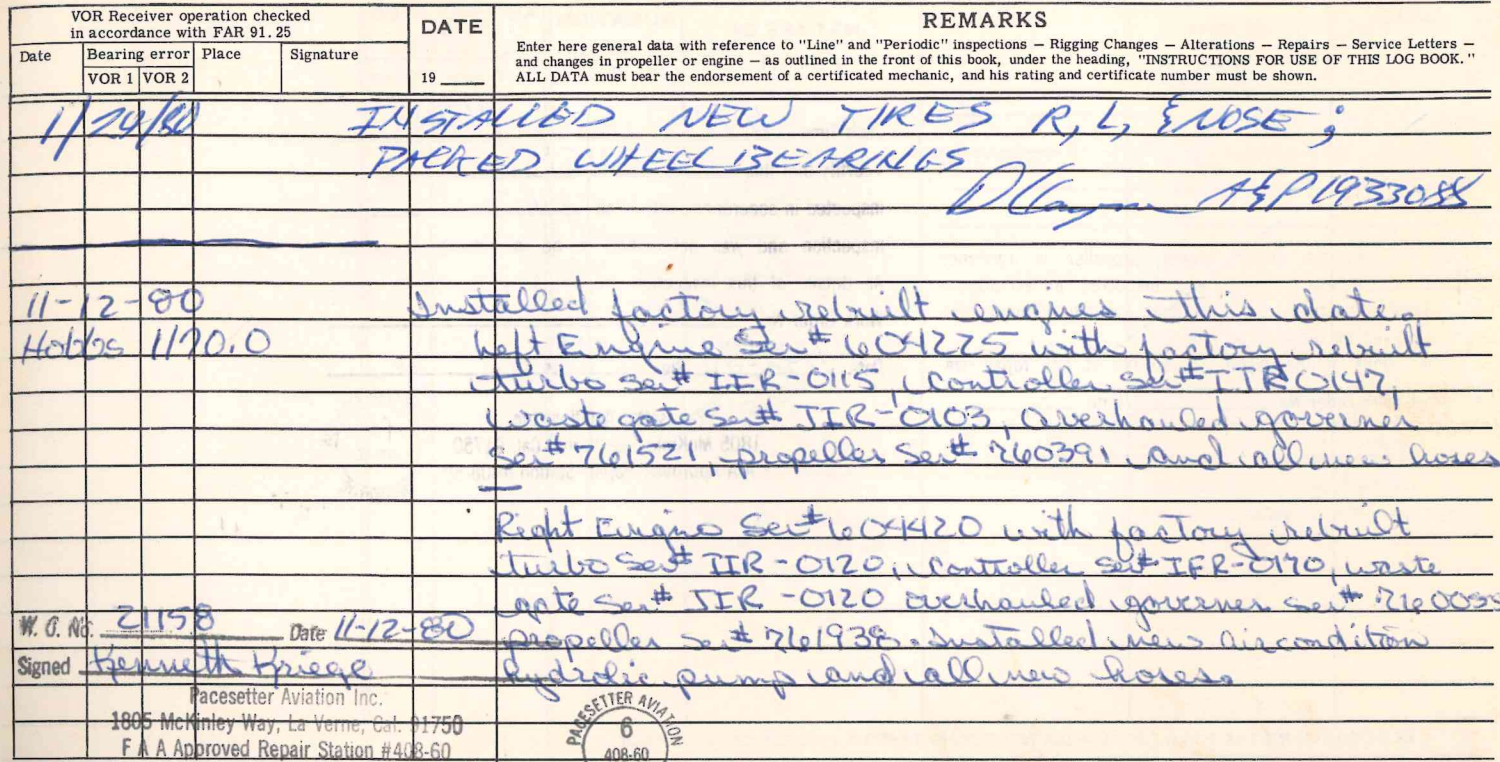 VOR Receiver operation checked
in accordance with FAR 91.25
Date Bearing error Place Signature
VOR 1 VOR 2
DATE
19
REMARKS
Enter here general data with reference to "Line" and "Periodic" inspections — Rigging Changes — Alterations — Repairs — Service Letters —
and changes in propeller or engine — as outlined in the front of this book, under the heading, "INSTRUCTIONS FOR USE OF THIS LOG BOOK."
ALL DATA must bear the endorsement of a certificated mechanic, and his rating and certificate number must be shown.
1/24/80 INSTALLED NEW TIRES R, L, & NOSE;
PACKED WHEEL BEARINGS
A&P 1933088
11-12-80 Installed factory rebuilt engines this date.
Hobbs 1170.0 Left Engine Ser# 604225 with factory rebuilt
turbo ser# IIR-0115, controller ser# 0147,
waste gate ser# JIR-0103, overhauled governer
ser# 761521 propeller ser# 760391 and all new hoses
Right Engine Ser# 604420 with factory rebuilt
turbo ser# IIR-0120, controller ser# IFR-0170, waste
gate ser# JIR-0120 overhauled governer ser#
propeller ser# 761938. Installed new aircondition
hydrolic pump and all new hoses.
W. O. No. 21158 Date 11-12-80
Signed Kenneth Kriege
Pacesetter Aviation Inc.
1805 McKinley Way, La Verne, Cal. 91750
F A A Approved Repair Station #408-60
PACESETTER AVIATION
6
408-60